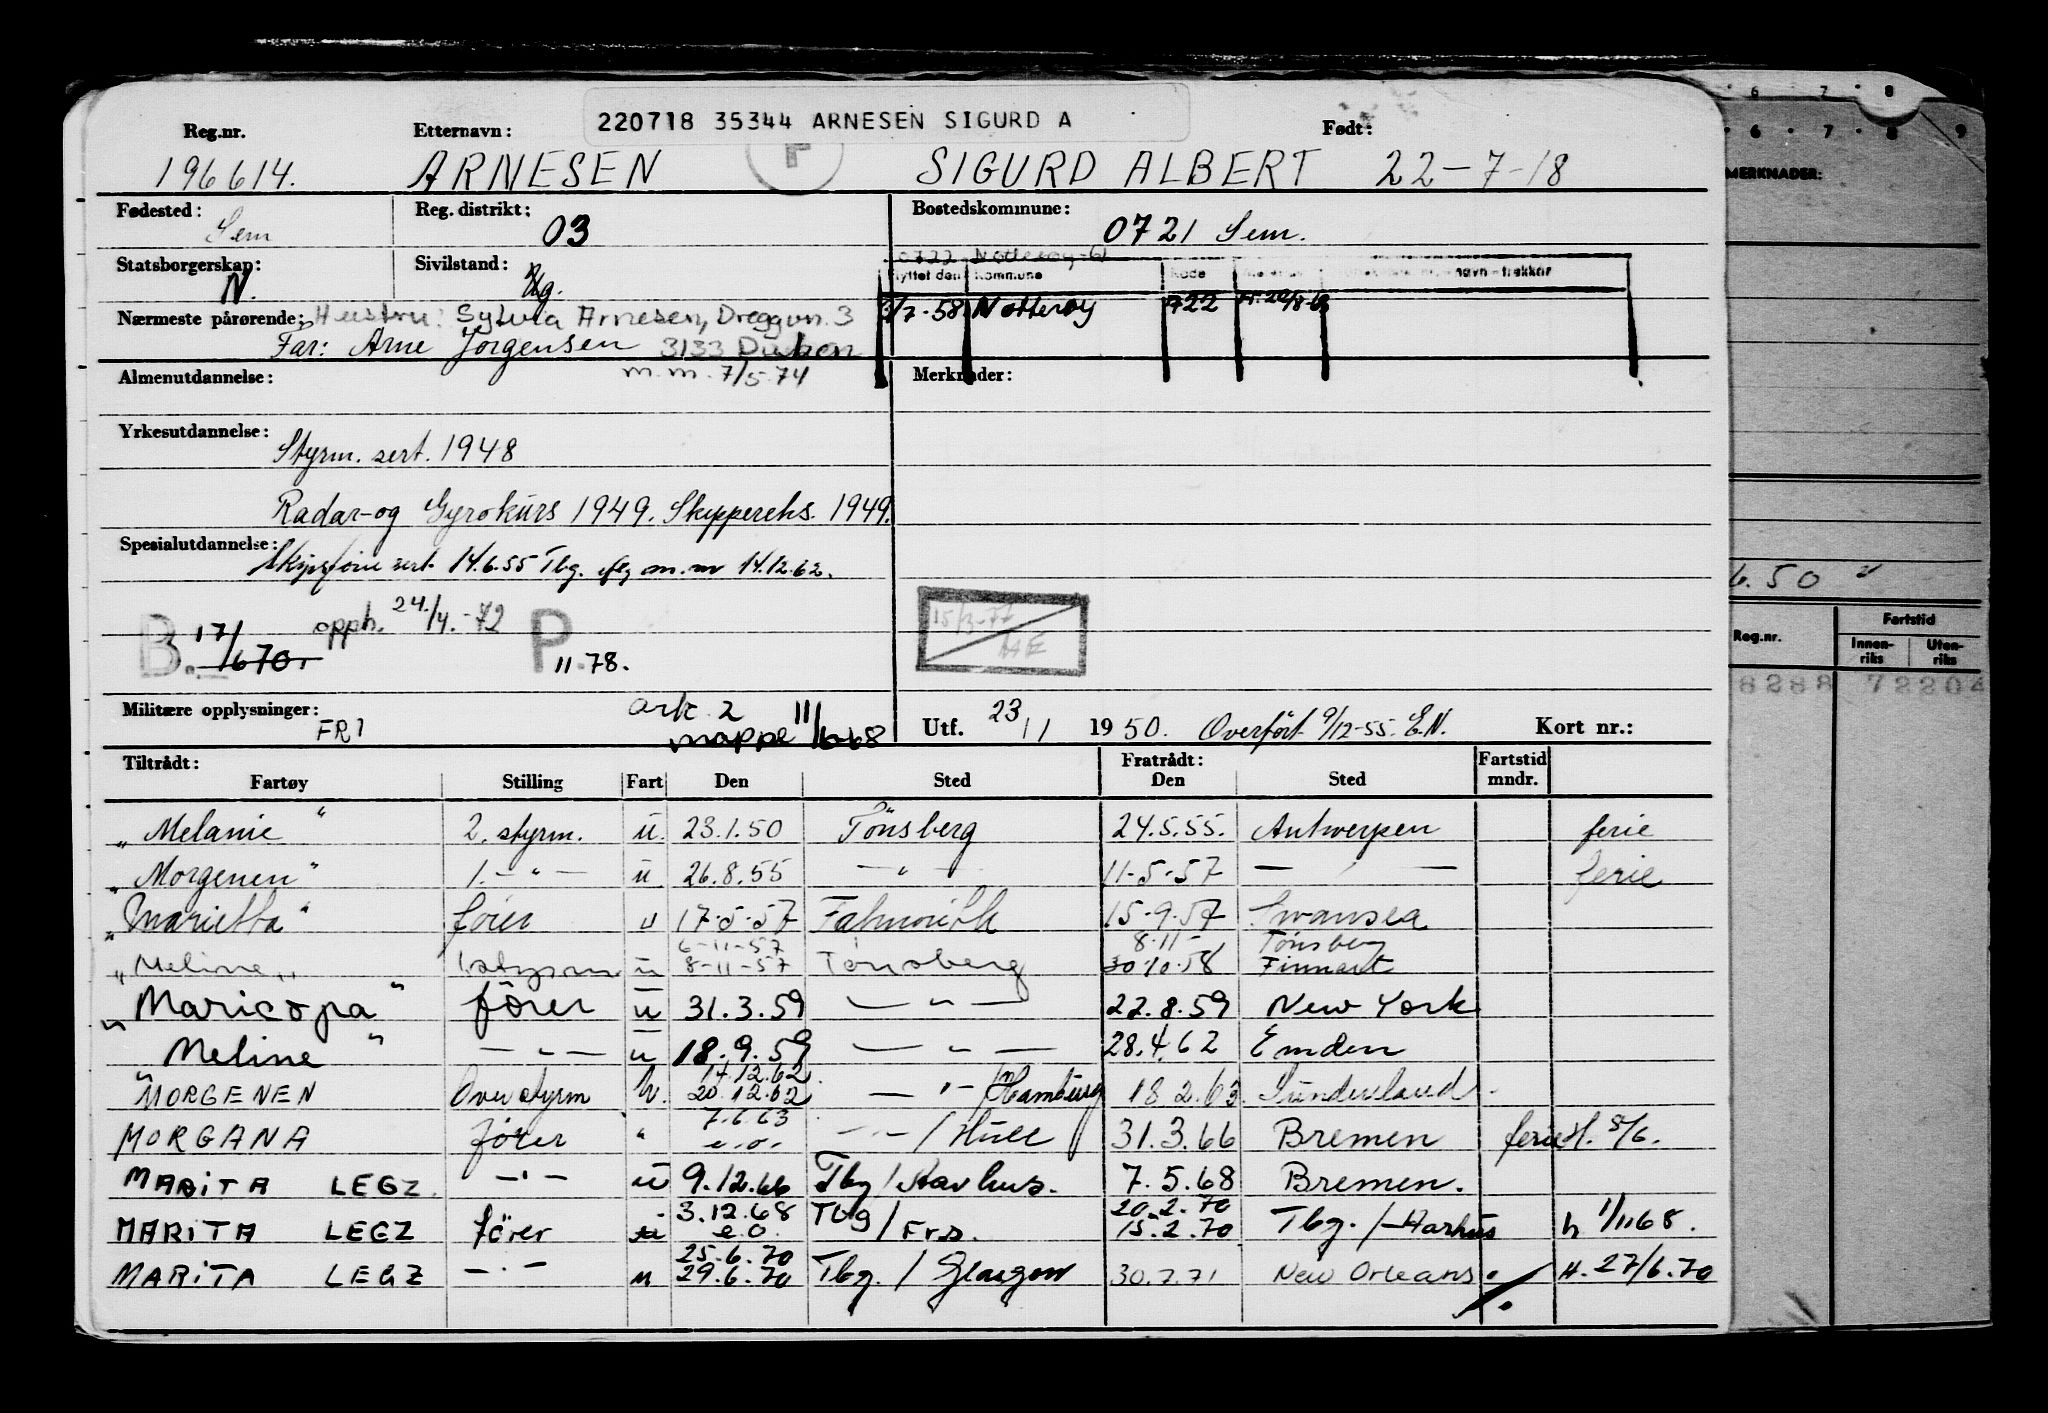 220718 35344 ARNESEN SIGURD A
Reg.nr. Etternavn: Født:
196614. ARNESEN SIGURD ALBERT 22-7-18
Fødested: Sem Reg. distrikt: 03 Bostedskommune: 0721 Sem.
0722 Nøtterøy
Statsborgerskap: N. Sivilstand: Ug.
Flyttet den Kommune Kode
Nærmeste pårørende: Hustru: Sylvia Arnesen, Dreggvn. 3
/7-58 Nøtterøy 722
Far: Arne Jørgensen 3133 Duken
m.m. 7/5.74
Almenutdannelse: Merknader:
Yrkesutdannelse: Styrm. sert. 1948
Radar-og Gyrokurs 1949. Skippereks. 1949.
Spesialutdannelse: Skipsfører sert. 14.6.55 Tbg. m.m 14.12.62.
B. 17/670. opph. 24./4.-72 P 11.78.
15/3-77
Militære opplysninger: FRI ark. 2
mappe 11/668
Utf. 23/1 1950. Overført 9/12-55. E.N. Kort nr.:
Tiltrådt: Fratrådt: Fartstid
Fartøy Stilling Fart Den Sted Den Sted mndr.
„Melanie" 2. styrm. u. 23.1.50 Tönsberg 24.5.55. Antwerpen ferie
„Morgenen" 1. — " — u 26.8.55 — " — 11-5-57 — " — ferie
„Marietta" fører u 17-5-57 Falmouth 15-9.57 Swansea
6-11-57 8-11- Tönsberg
„Meline" 1styrm u 8-11-57 Tönsberg 30.10.58 Finnart
„Maricopa" förer u 31.3.59 — " — 22.8.59 New York
„Meline" — " — u 18.9.59 — " — 28.4.62 Emden
17.12.62
"MORGENEN Overstyrm u. 20.12.62 — " — /Hamburg 18 2.63. Sunderland
7.6.63
MORGANA fører " e.o. — " — / Hull 31.3.66 Bremen ferie H. 8/6.
MARITA LEGZ. — " — u 9.12.66 Tbg / Aarhus. 7.5.68 Bremen.
3.12.68 20.2.70
MARITA LEGZ fører u e.o. Tbg / Frs. 15.2.70 Tbg. / Aarhus h 1/1168.
25.6.70
MARITA LEGZ — " — u 29.6.70 Tbg. / Glasgow 30.7.71 New Orleans. H. 27/6.70
6 7 8
6 7 8 9
MERKNADER:
6.50
Reg.nr. Fartstid
Innen-riks Uten-riks
8288 72204